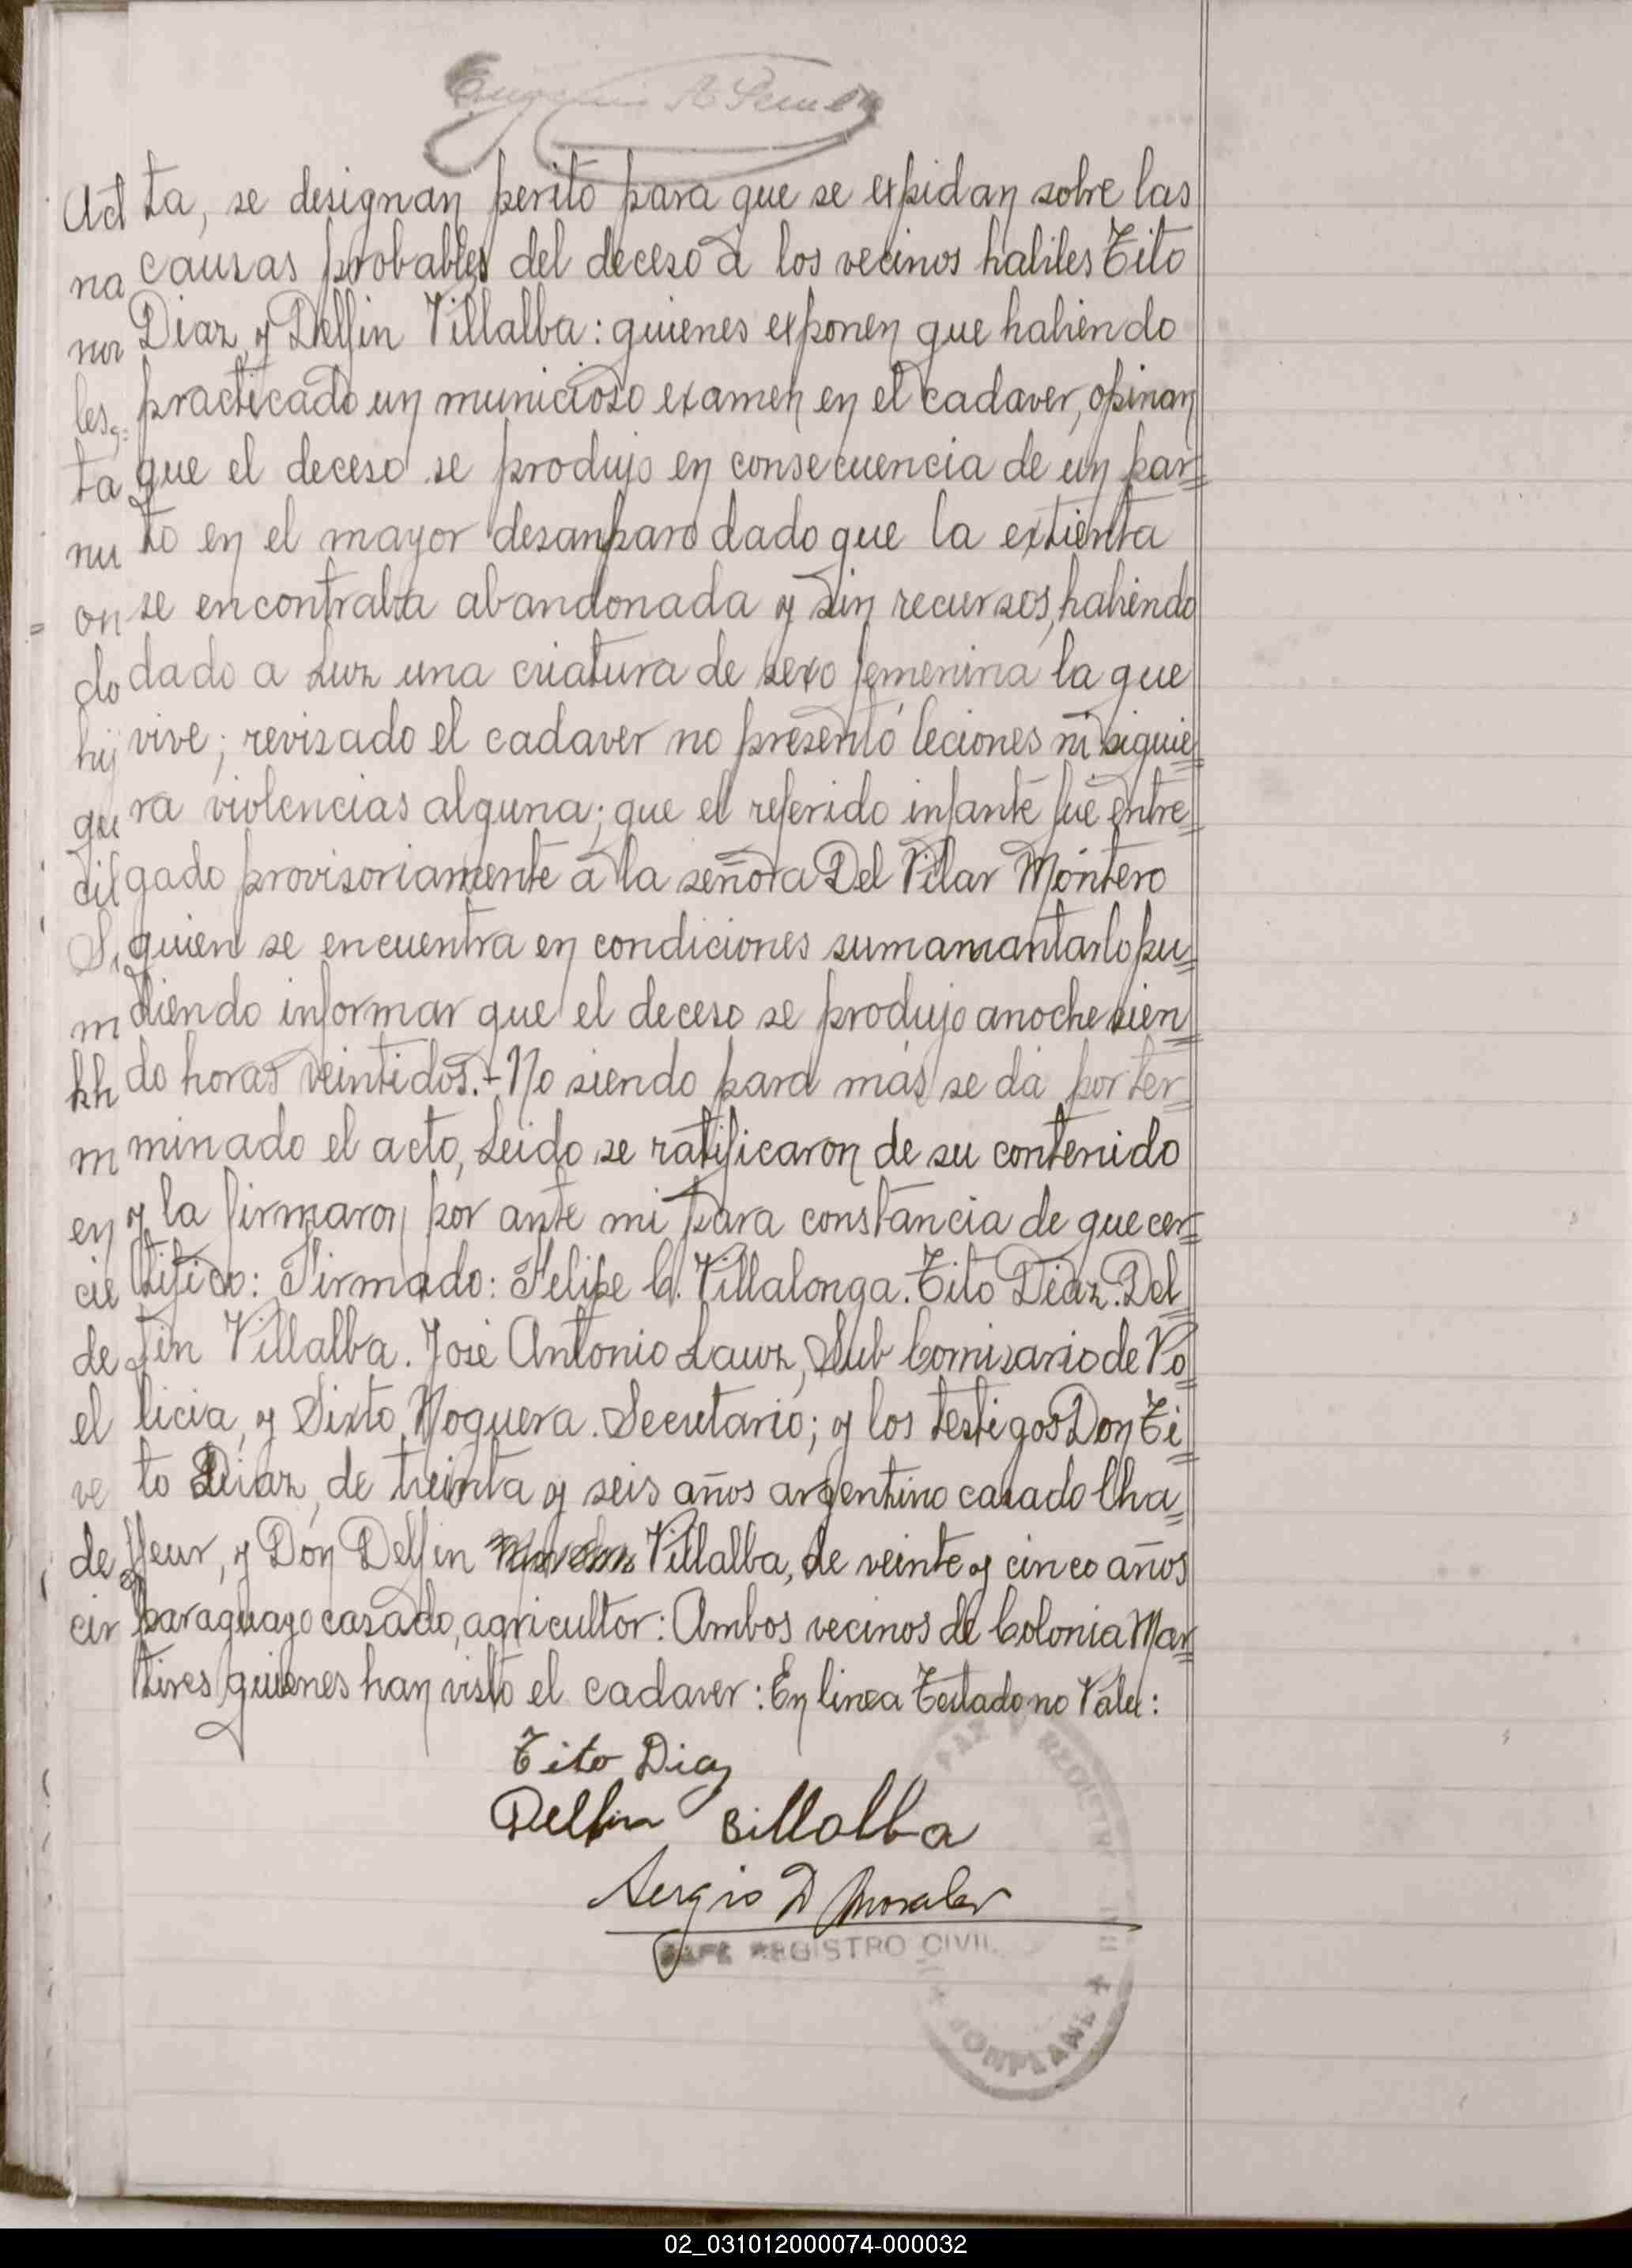 Eugenio A
ta, se designan perito para que se expidan sobre las
causas probables del deceso á los vecinos habiles Tito
Diaz, y Delfin Villalba: quienes exponen que habiendo
practicado un municioso examen en el cadaver, opinan
que el deceso se produjo en consecuencia de un par=
to en el mayor desanparo dado que la extienta
se encontraba abandonada y sin recursos, habiendo
dado a Luz una criatura de sexo femenina la que
vive; revisado el cadaver no presentó leciones ni siquie=
ra violencias alguna; que el referido infante fué entre=
gado provisoriamente á la señora Del Pilar Montero
quien se encuentra en condiciones sumamantarlo pu=
diendo informar que el deceso se produjo anoche sien=
do horas veintidos.- No siendo para más se dá por ter=
minado el acto, Leido se ratificaron de su contenido
y la firmaron por ante mi para constancia de que cer=
tifico: Firmado: Felipe C. Villalonga. Tito Diaz. Del=
fin Villalba. José Antonio Lauz, Sub Comisario de Po=
licia, y Sixto Noguera. Secretario; y los testigos Don Ti=
to Diaz, de treinta y seis años argentino casado Cha=
ffeur, y Don Delfin Villalba, de veinte y cinco años
paraguayo casado, agricultor: Ambos vecinos de Colonia Mar=
tires quienes han visto el cadaver: En linea Testado no Vale:
Tito Diaz
Delfin Billalba
Sergio D Morales
JEFE REGISTRO CIVIL
PAZ Y REGISTRO CIVIL
BONPLAND
Act
na
nor
les,
ta
nu
on
do
hij
que
cil
S.
m
kh
m
en
cie
de
el
ve
de
cir
02_031012000074-000032